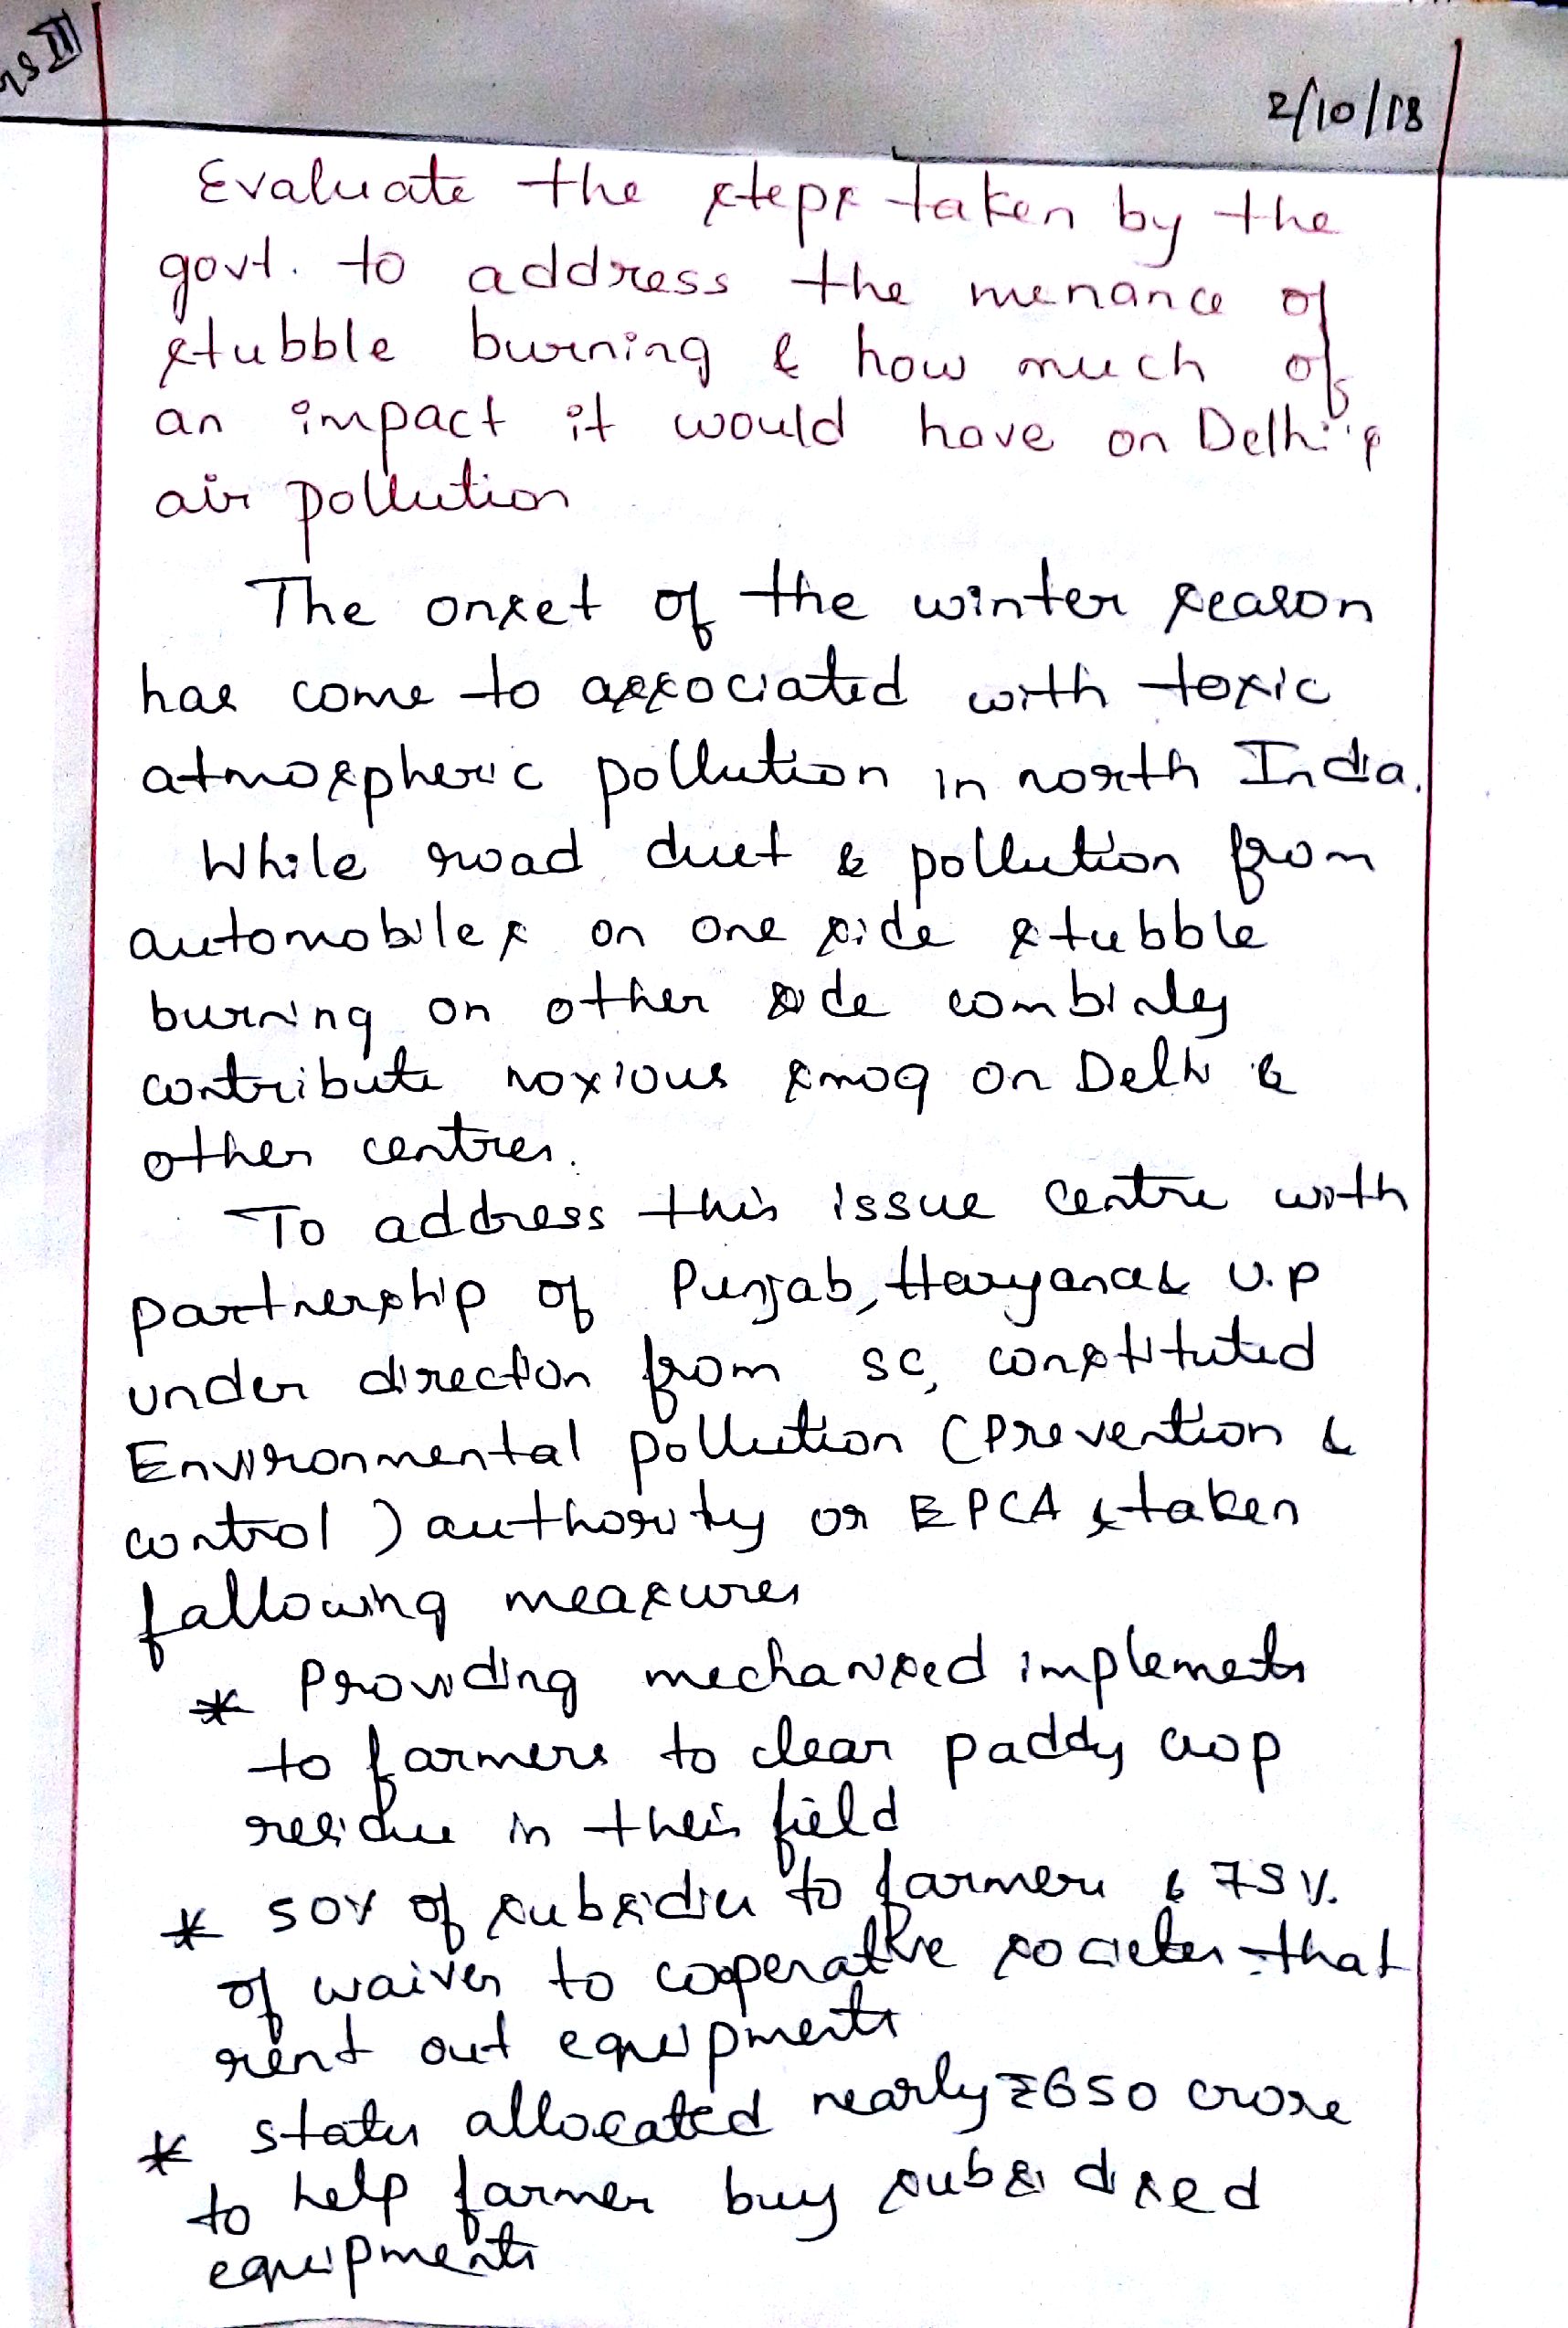 2/10/18
Evaluate the steps taken by the
govt. to address the menance of
stubble burning & how much of
an impact it would have on Delhi's
air pollution
The onset of the winter season
has come to associated with toxic
atmospheric pollution in north India.
While road dust & pollution from
automobiles on one side stubble
burning on other side combinly
contribute noxious smog on Delhi &
other centres.
To address this issue centre with
partnership of Punjab, Haryana & U.P
under direction from SC, constituted
Environmental pollution (Prevention &
control) authority or EPCA & taken
fallowing measures
* Providing mechanised implements
to farmers to clear paddy crop
residue in their field
* 50% of subsidies to farmers & 75%
of waiver to cooperative societies that
rent out equipments
* states allocated nearly ₹650 crore
to help farmer buy subsidised
equipments